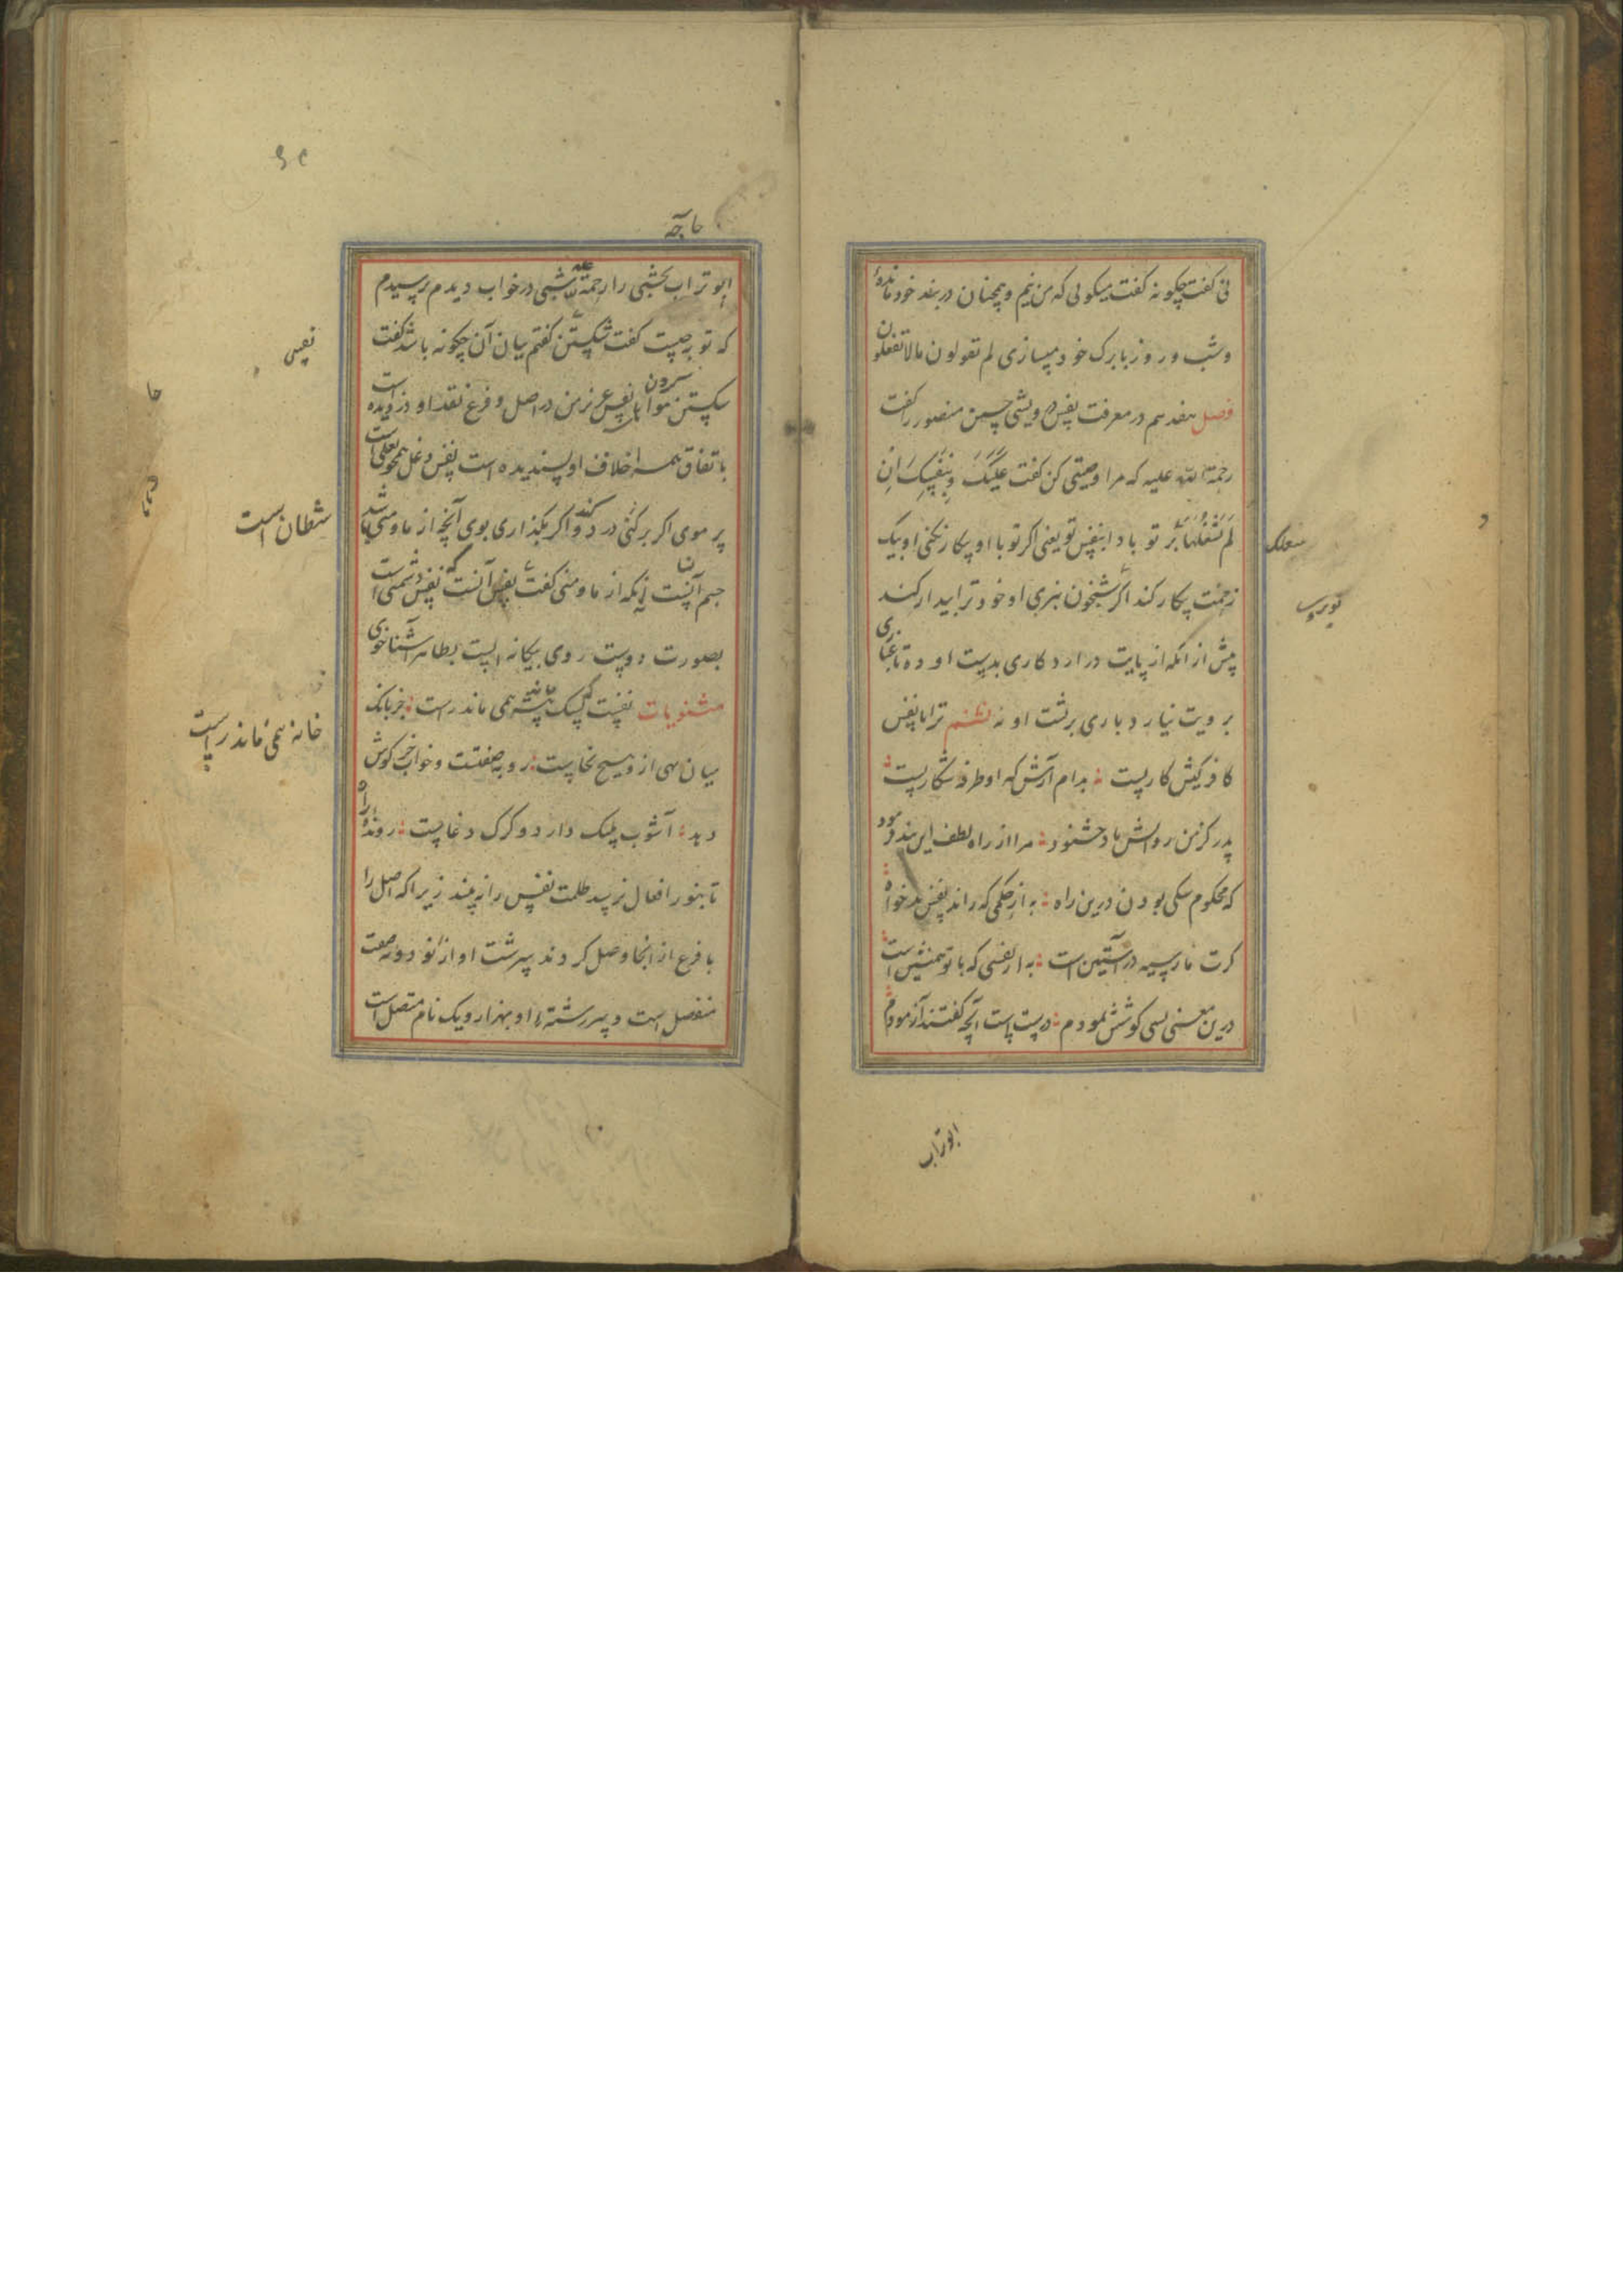 نی کفت چکونه کفت میکوئی که من نیم و همچنان در بند خود مانده
و شب و روز با برک خود میسازی لم تقولون مالا تفعلون
فصل هفدهم در معرفت نفس درویشی حسین منصور را کفت
رحمة الله علیه که مرا وصیتی کن کفت علیک بنفسک ان
لم تشغلها تو باد ا بنفس تو یعنی اکر تو با او پیکار نکنی او بیک
زحمت پیکار کند اکر شبیخون نبری او خود ترا بیدار کند
پیش از آنکه از پایت درارد کاری بدست او ده تا غباری
برویت نیارد باری بر پشت او نه ترا با نفس
کافرکیش کاریست بدام آرش که او طرفه شکاریست
پدر کز من روانش باد خشنود مرا از راه لطف این پند فرمود
که محکوم سکی بودن درین راه به از حکمی که راند نفس بدخواه
کرت مار سیه در آستین است به از نفسی که با تو همنشین است
درین معنی بسی کوشش نمودم درست است آنچه کفتند آزمودم
ابوتراب
حاجة
ابوتراب نخشبی را رحمة الله علیه شبی در خواب دیدم پرسیدم
که توبه چیست کفت شکستن کفتم بیان آن چکونه باشد کفت
شکستن نفس عزیز من در اصل و فرع نقد او دزدیده است
باتفاق همه خلاف او پسندیده است نفس دغل همچو
پر موی اکر برکنی درد کند و اکر بکذاری بوی آنچه از ما و منی باشد
جسم آنست نه آنکه از ما و منی کفت نفس آنست که نفس دشمنی است
بصورت دوست روی بیکانه ایست بظاهر آشنا خوی
مثنویات همی ماند راست جز بانک
میان تهی ازو هیچ نخاست روبه صفتست و خواب خرکوش
دهد آشوب پلنک دارد و کرک دغاست رونده راه
تا بنور افعال نرسد ظلمت نفس را نه بیند زیرا که اصل را
با فرع از انجا وصل کردند سرشت او از نود و نه صفت
منفصل است و سر رشته او بهزار و یک نام متصل است
نفس
شطان است
خانه همی ماند راست